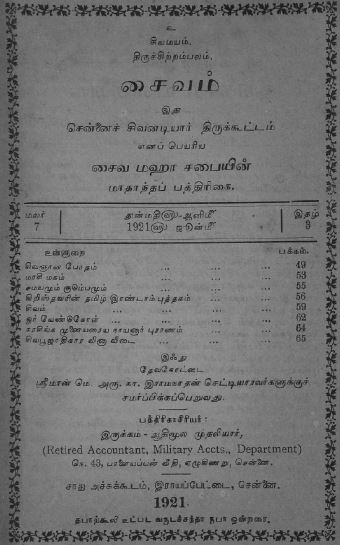 உ
சிவமயம்.
திருச்சிற்றம்பலம்.
சைவம்
இது
சென்னைச் சிவனடியார் திருக்கூட்டம்
எனப் பெயரிய
சைவ மஹா சபையின்
மாதாந்தப் பத்திரிகை.
மலர் துன்மதி௵-ஆனி௴ இதழ்
7 1921௵ ஜூன்௴ 3
உள்ளுறை பக்கம்.
சிவஞான போதம் ... ... ... 49
மாசி மகம் ... ... ... 53
சமயமும் குடும்பமும் ... ... ... 55
கிறிஸ்தவரின் தமிழ் இரண்டாம் புத்தகம் ... ... 56
சிவம் ... ... ... 59
ஓர் வேண்டுகோள் ... ... ... 62
நரசிங்க முனையரைய நாயனார் புராணம் ... ... 64
சிவபூஜாதிகார வினா விடை ... ... ... 65
இஃது
தேவகோட்டை
ஸ்ரீமான் மெ. அரு. நா. இராமநாதன் செட்டியாரவர்களுக்குச்
சமர்ப்பிக்கப்பெறுவது.
பத்திரிகாசிரியர்:
இருக்கம - ஆதிமூல முதலியார்,
(Retired Accountant, Military Accts., Department)
நெ. 43, பாளையப்பன் வீதி, ஏழுகிணறு, சென்னை.
சாது அச்சுக்கூடம், இராயப்பேட்டை, சென்னை.
1921.
தபாற்கூலி உட்பட வருடச்சந்தா ரூபா ஒன்றரை.